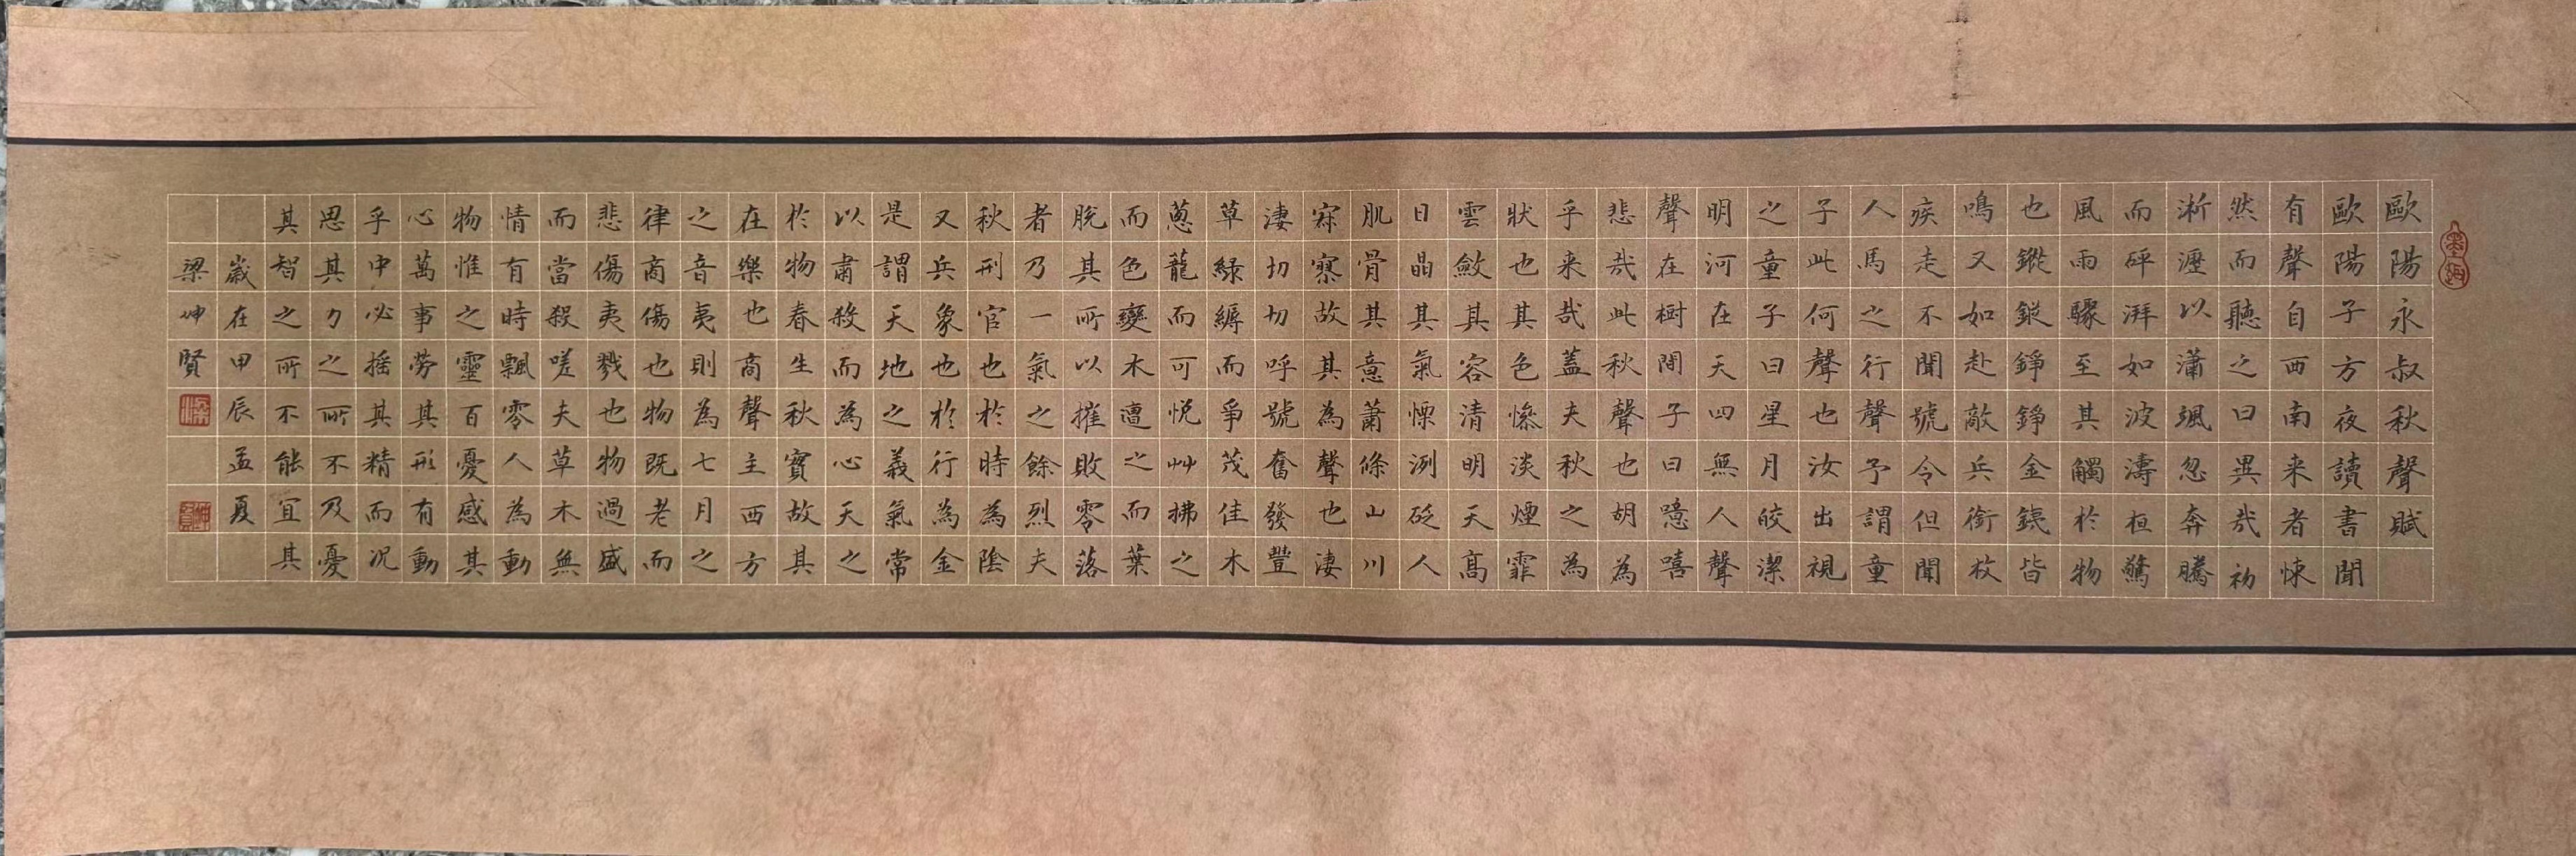 歐陽永叔秋聲賦
歐陽子方夜讀書聞
有聲自西南来者悚
然而聽之曰異哉初
淅瀝以瀟颯忽奔騰
而砰湃如波濤桓驚
風雨驟至其觸於物
也鏦鏦錚錚金銕皆
鳴又如赴敵兵銜枚
疾走不聞號令但聞
人馬之行聲予謂童
子此何聲也汝出視
之童子曰星月皎潔
明河在天四無人聲
聲在樹間子曰噫嘻
悲哉此秋聲也胡為
乎来哉蓋夫秋之為
狀也其色慘淡煙霏
雲斂其容清明天高
日晶其氣慄冽砭人
肌骨其意蕭條山川
寂寥故其為聲也淒
淒切切呼號奮發豐
草緑縟而爭茂佳木
蔥蘢而可悅艸拂之
而色變木遭之而葉
脫其所以摧敗零落
者乃一氣之餘烈夫
秋刑官也於時為陰
又兵象也於行為金
是謂天地之義氣常
以肅殺而為心天之
於物春生秋實故其
在樂也商聲主西方
之音夷則為七月之
律商傷也物既老而
悲傷夷戮也物過盛
而當殺嗟夫草木無
情有時飄零人為動
物惟之靈百憂感其
心萬事勞其形有動
乎中必搖其精而況
思其力之所不及憂
其智之所不能宜其
歲在甲辰孟夏
梁坤賢